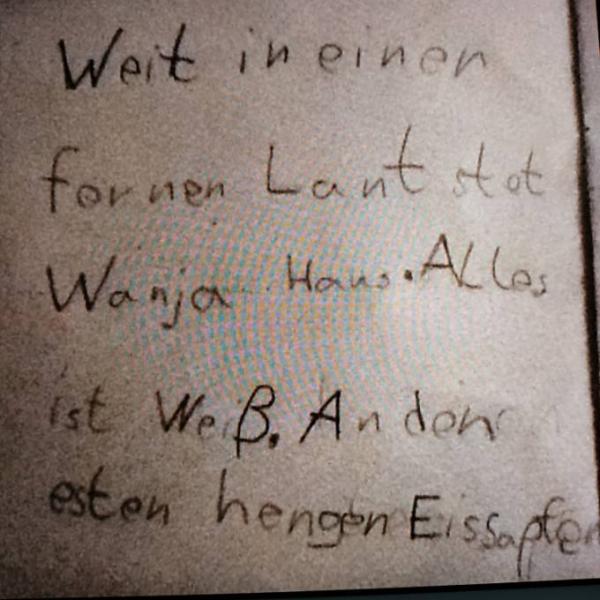 Weit in einen
fornen Lant stet
Wanja Haus. Alles
ist Weiß. An den
esten hengen Eissapfen